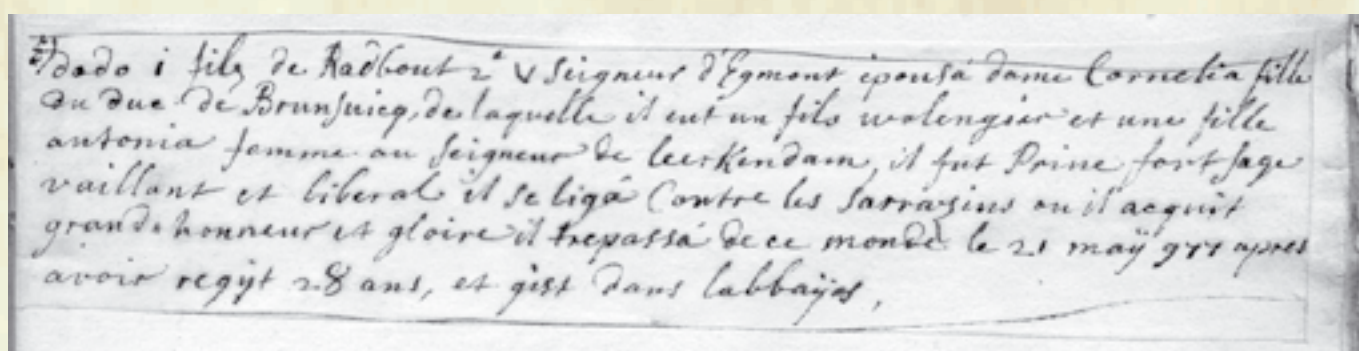 dodo i fils de Radbout 2e V Seigneur d'Egmont épousá dame Cornelia fille
du duc de Brunsuicq, de laquelle il eut un fils wolengier et une fille
antonia femme au seigneur de leerkendam, il fut Prine fort sage
vaillant et liberal il se ligá Contre les Sarrazins ou il acquit
grande honneur et gloire il trepassá de ce monde le 21 maÿ 977 apres
avoir regÿt 28 ans, et gist dans labbaÿes,